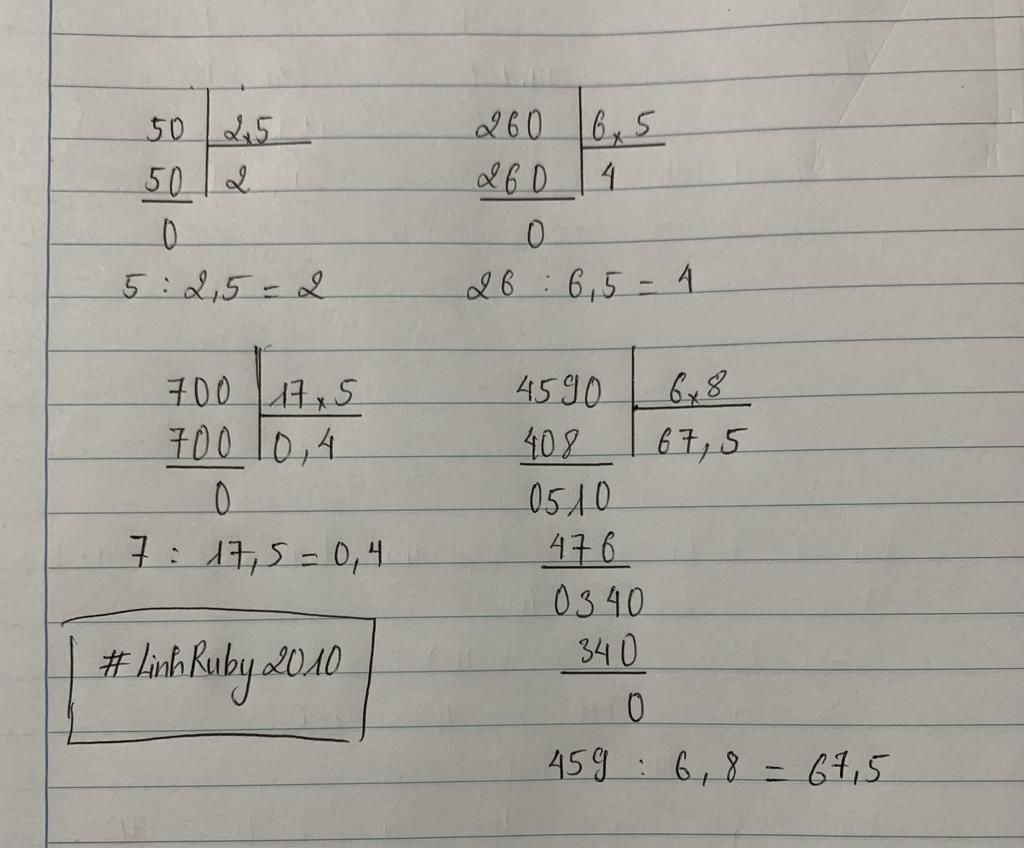 50 2,5 260 6,5
50 2 260 4
0 0
5 : 2,5 = 2 26 : 6,5 = 4
700 17,5 4590 6,8
700 0,4 408 67,5
0 0510
7 : 17,5 = 0,4 476
0340
#LinhRuby2010 340
0
459 : 6,8 = 67,5